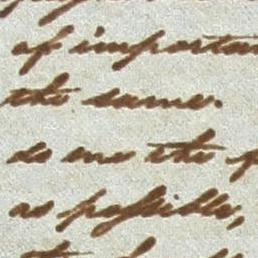 of importan
the same.
do me the
as possible,